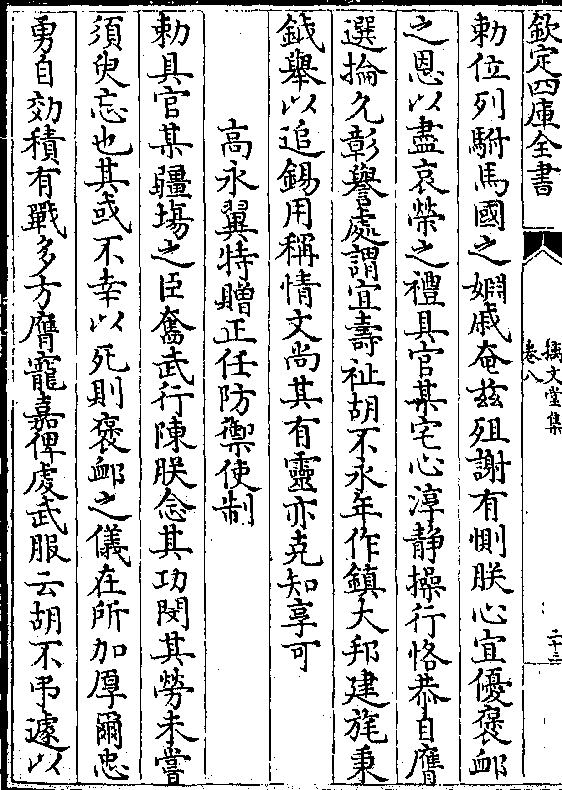 欽定四庫全書
摛文堂集
卷八
二十三
勅位列駙馬國之婣戚奄兹殂謝有惻朕心宜優褒䘏
之恩以盡哀榮之禮具官某宅心淳静操行恪恭自膺
選掄久彰譽處謂宜壽祉胡不永年作鎮大邦建旄秉
鉞舉以追錫用稱情文尚其有靈亦克知享可
高永翼特贈正任防禦使制
勅具官某疆埸之臣奮武行陳朕念其功閔其勞未嘗
須臾忘也其或不幸以死則褒䘏之儀在所加厚爾忠
勇自効積有戰多方膺寵嘉俾處武服云胡不弔遽以